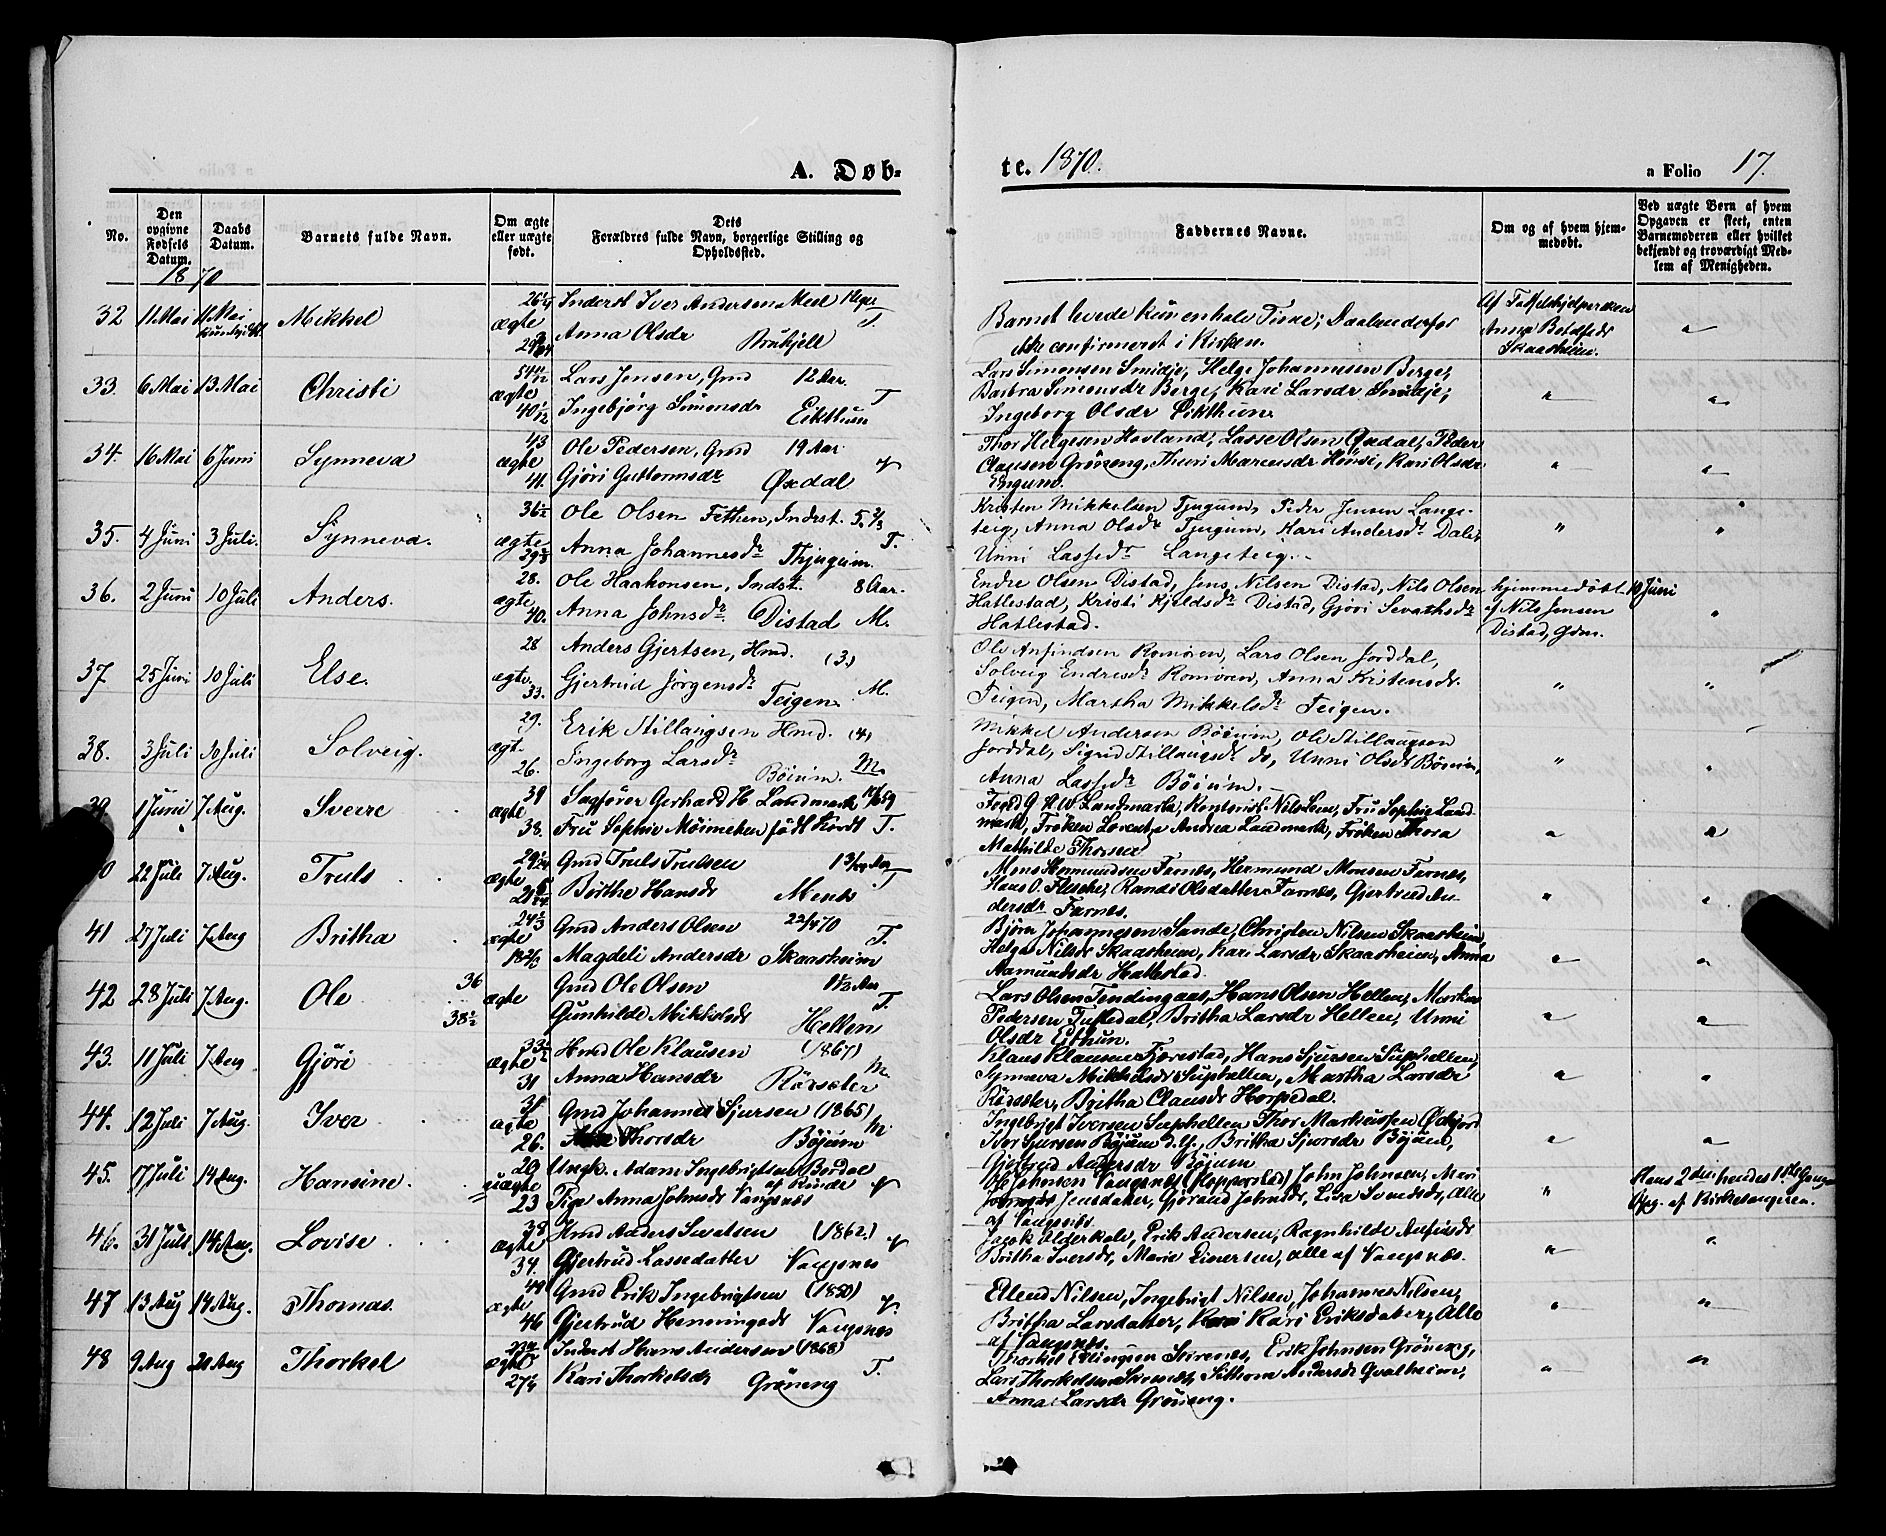 A. Døb-
te. 1870.
a Folio 17.
No.
Den opgivne Fødsels Datum.
Daabs Datum.
Barnets fulde Navn.
Om ægte eller uægte født.
Dets Forældres fulde Navn, borgerlige Stilling og Opholdssted.
Faddernes Navne.
Om og af hvem hjem- medøbt.
Ved uægte Børn af hvem Opgaven er skeet, enten Barnemoderen eller hvilket bekjendt og troværdigt Med- lem af Menigheden.
1870
32 11 Mai 11 Mai Mikkel ægte Inderst Iver Andersen
Anna Olsdr
Barnet levede kun en halv Time;
ikke confirmeret i Kirken.
Skaasheim.
33. 6 Mai 13 Mai Christi ægte Lars Jensen, Gmd 12 Aar.
Ingebjørg Simonsdr Eikthun T
Lars Simonsen Smidje, Helge Johannesen Berge,
Barbra Simonsdr Berge, Kari Larsdr Smidje,
Ingeborg Olsdr Eikthun
34. 16 Mai 6 Juni Synneva 43 ægte 41. Ole Pedersen, Gmd 19 Aar.
Gjøri Guttormsdr Øxdal
Thor Helgesen Hovland, Lasse Olsen Øxdal, Peder
Clausen Grøneng, Thuri Marcusdr Hønsi, Kari Olsdr
Engum.
35. 4 Juni 3 Juli. Synneva. ægte Ole Olsen Fethen, Inderst. 5 2/3
Anna Johannesdr Thjugum. T.
Kristen Mikkelsen Tjugum, Peder Jensen Lange-
teig, Anna Olsdr Tjugum, Kari Andersdr Dale,
Unni Lassedr Langeteig.
36. 2 Juni 10 Juli Anders. 28. ægte 40. Ole Haakonsen, Indst. 8 Aar.
Anna Johnsdr. Distad M.
Endre Olsen Distad, Jens Nilsen Distad, Nils Olsen
Hatlestad, Kristi Kjeldsdr Distad, Gjøri Sevathsdr
Hatlestad.
hjemmedøbt 10 Juni
af Nils Jensen
Distad, Gdm.
37. 25 Juni 10 Juli Else. 28 ægte 33. Anders Gjertsen, Hmd. (3.)
Gjertrud Jørgensdr Teigen. M.
Ole Anfindsen Romøren, Lars Olsen Jorddal,
Solveig Endresdr Romøren, Anna Kristensdr.
Teigen, Martha Mikkelsdr Teigen.
38. 3 Juli 10 Juli Solveig. 29. ægt. 26. Erik Stillaugsen Hmd. (4)
Ingeborg Larsdr Bøium. M.
Mikkel Andersen Bøium, Ole Stillaugsen
Jorddal, Sigrid Stillaugsdr do, Unni Olsdr Bøium,
Anna Lassedr Bøium.
39. 1 Juni 7 Aug. Sverre 39 ægte 38. Sagfører Gerhard H. Landmark
Fru Sophie Møinichen født Kordt T.
Foged G. H. W. Landmark, Kontorist Nils Lem, Fru Sophie Land-
mark, Frøken Lorentze Andrea Landmark, Frøken Thora
Mathilde Thorsen
40 22 Juli 7 Aug. Truls ægte Gmd Truls Trulssen
Brithe Hansdr Ments T
Mons Hermundsen Farnes, Hermund Monsen Farnes,
Hans O. Flesche, Randi Olsdatter Farnes, Gjertrud An-
dersdr Farnes.
41 27 Juli 7 Aug Britha ægte Gmd Anders Olsen 22/4 70
18 2/3 Magdeli Andersdr Skaasheim T.
Bjørn Johannesen Sande, Christen Nilsen Skaasheim,
Helga Nilsdr Skaasheim, Kari Larsdr Skaasheim, Anna
Aamundsdr Hatlestad.
42 28 Juli 7 Aug. Ole 36 38½ ægte Gmd Ole Olsen
Gunhilde Mikkelsdr Hellen T.
Lars Olsen Tendingaas, Hans Olsen Hellen, Markus
Pedersen Tuftedal, Britha Larsdr Hellen, Unni
Olsdr Eithun.
43. 11 Juli 7 Aug Gjøri 33½ ægte 31 Hmd Ole Klausen (1867)
Anna Hansdr Rørsæter M.
Klaus Klausen Fjærestad, Hans Sjursen Suphellen,
Synneva Mikkelsdr Suphellen, Martha Larsdr
Rørsæter, Britha Clausdr Horpedal.
44. 12 Juli 7 Aug. Iver ægte 26. Gmd Johannes Sjursen (1865)
Thorsdr Bøjum M.
Ingebrigt Iversen Suphellen, Thor Markussen Ødejord
Iver Sjursen Bøjum d. y., Britha Sjursdr Bøjum,
Gjertrud Andersdr Bøjum
45. 17 Juli 14 Aug. Hansine. 29 uægte 23 Ungk. Adam Ingebrigtsen Berdal
af Rinde
Pige Anna Johnsdr Vangsnæs
Ole Johnsen Vangsnæs (Hopperstad) John Johnsen, Mari
Jensdatter, Gjøraud Johnsdr, Lisa Svendsdr, Alle
af Vangsnæs
Hans 2det hendes 1ste
Opg. af Kirkesangeren.
46. 31 Juli 14 Aug. Lovise 38 ægte 34. Hmd Anders Sivertsen (1862)
Gjertrud Lassedatter Vangsnes
Jacob Alderkele, Erik Andersen, Ragnhilde Anfinsdr
Britha Iversdr, Marie Einersen, alle af Vangsnæs.
47 13 Aug 14 Aug. Thomas. 49 ægte 46 Gmd Erik Ingebrigtsen (1850)
Gjertrud Henningsdr Vangsnes
Erlend Nilsen, Ingebrigt Nilsen, Johannes Nilsen,
Britha Larsdatter, Kari Eriksdatter, Alle
af Vangsnes.
48 9 Aug 20 Aug Thorkel ægte Inderst Hans Andersen (1868)
Kari Thorkelsdr Grøneng T.
Thorkel Erlingsen Seirenes, Erik Johnsen Grøneng,
Lars Thorkelsen, Andersdr Qvalheim,
Anna Larsdr Grøneng.